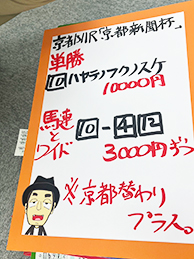 京都11R「京都新聞杯」
単勝
10ハヤテノフクノスケ
10000円
馬連
と
ワイド
10-4 12
3000円ずつ
※京都替わり
プラス。